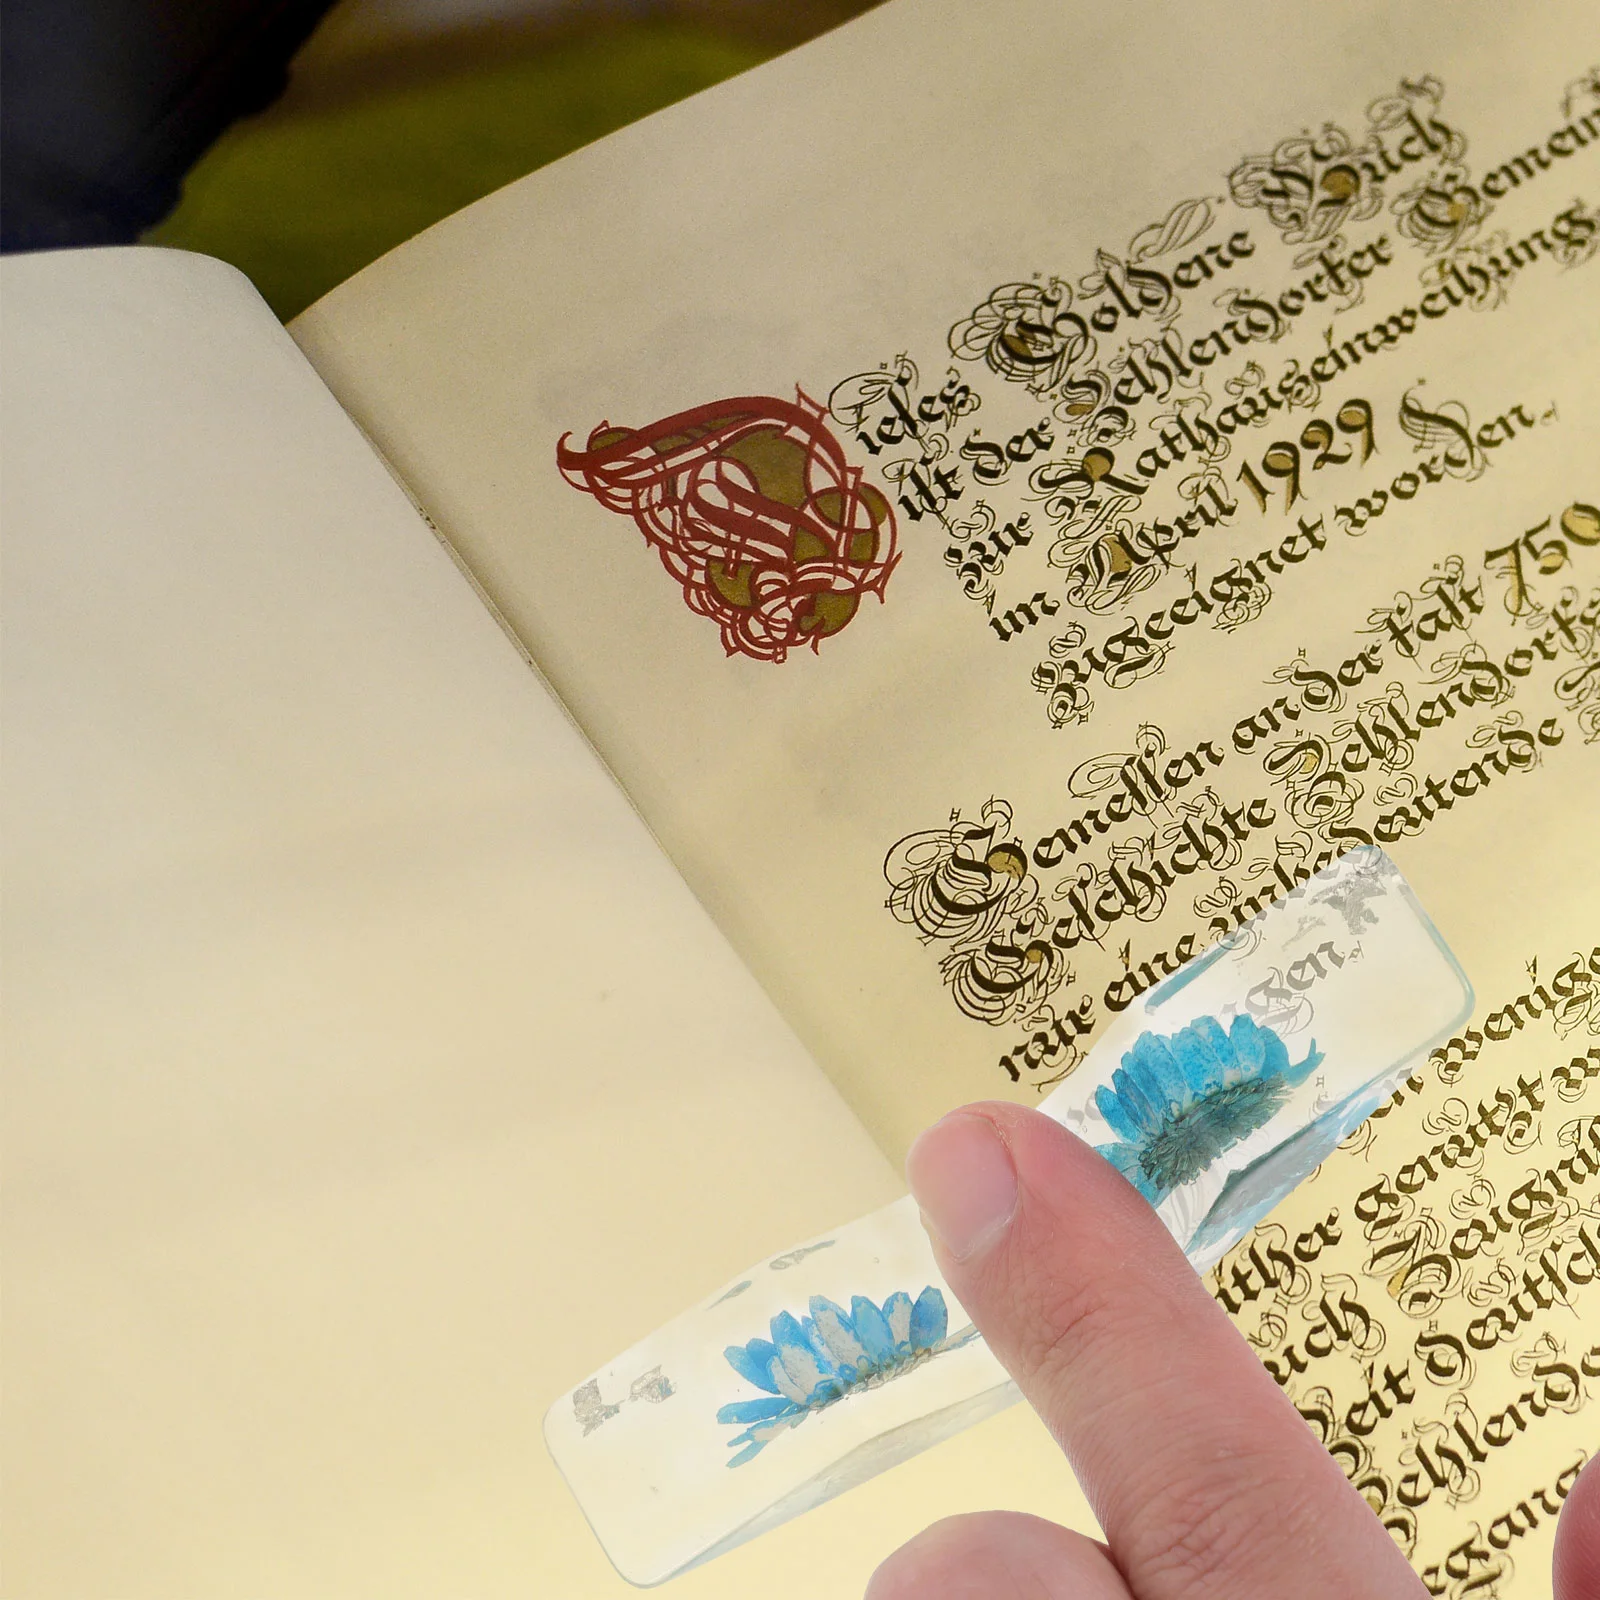 Dieses Goldene Buch
ist der Zehlendorfer Gemein
zur Rathauseinweihung
im April 1929
zugeeignet worden.
Gemessen an der fast 750
Geschichte Zehlendorfs
nur eine unbedeutende
igen
en wenige
ither genutzt w
uch Zeugnis
Zeit deutsch
Zehlendo
egang